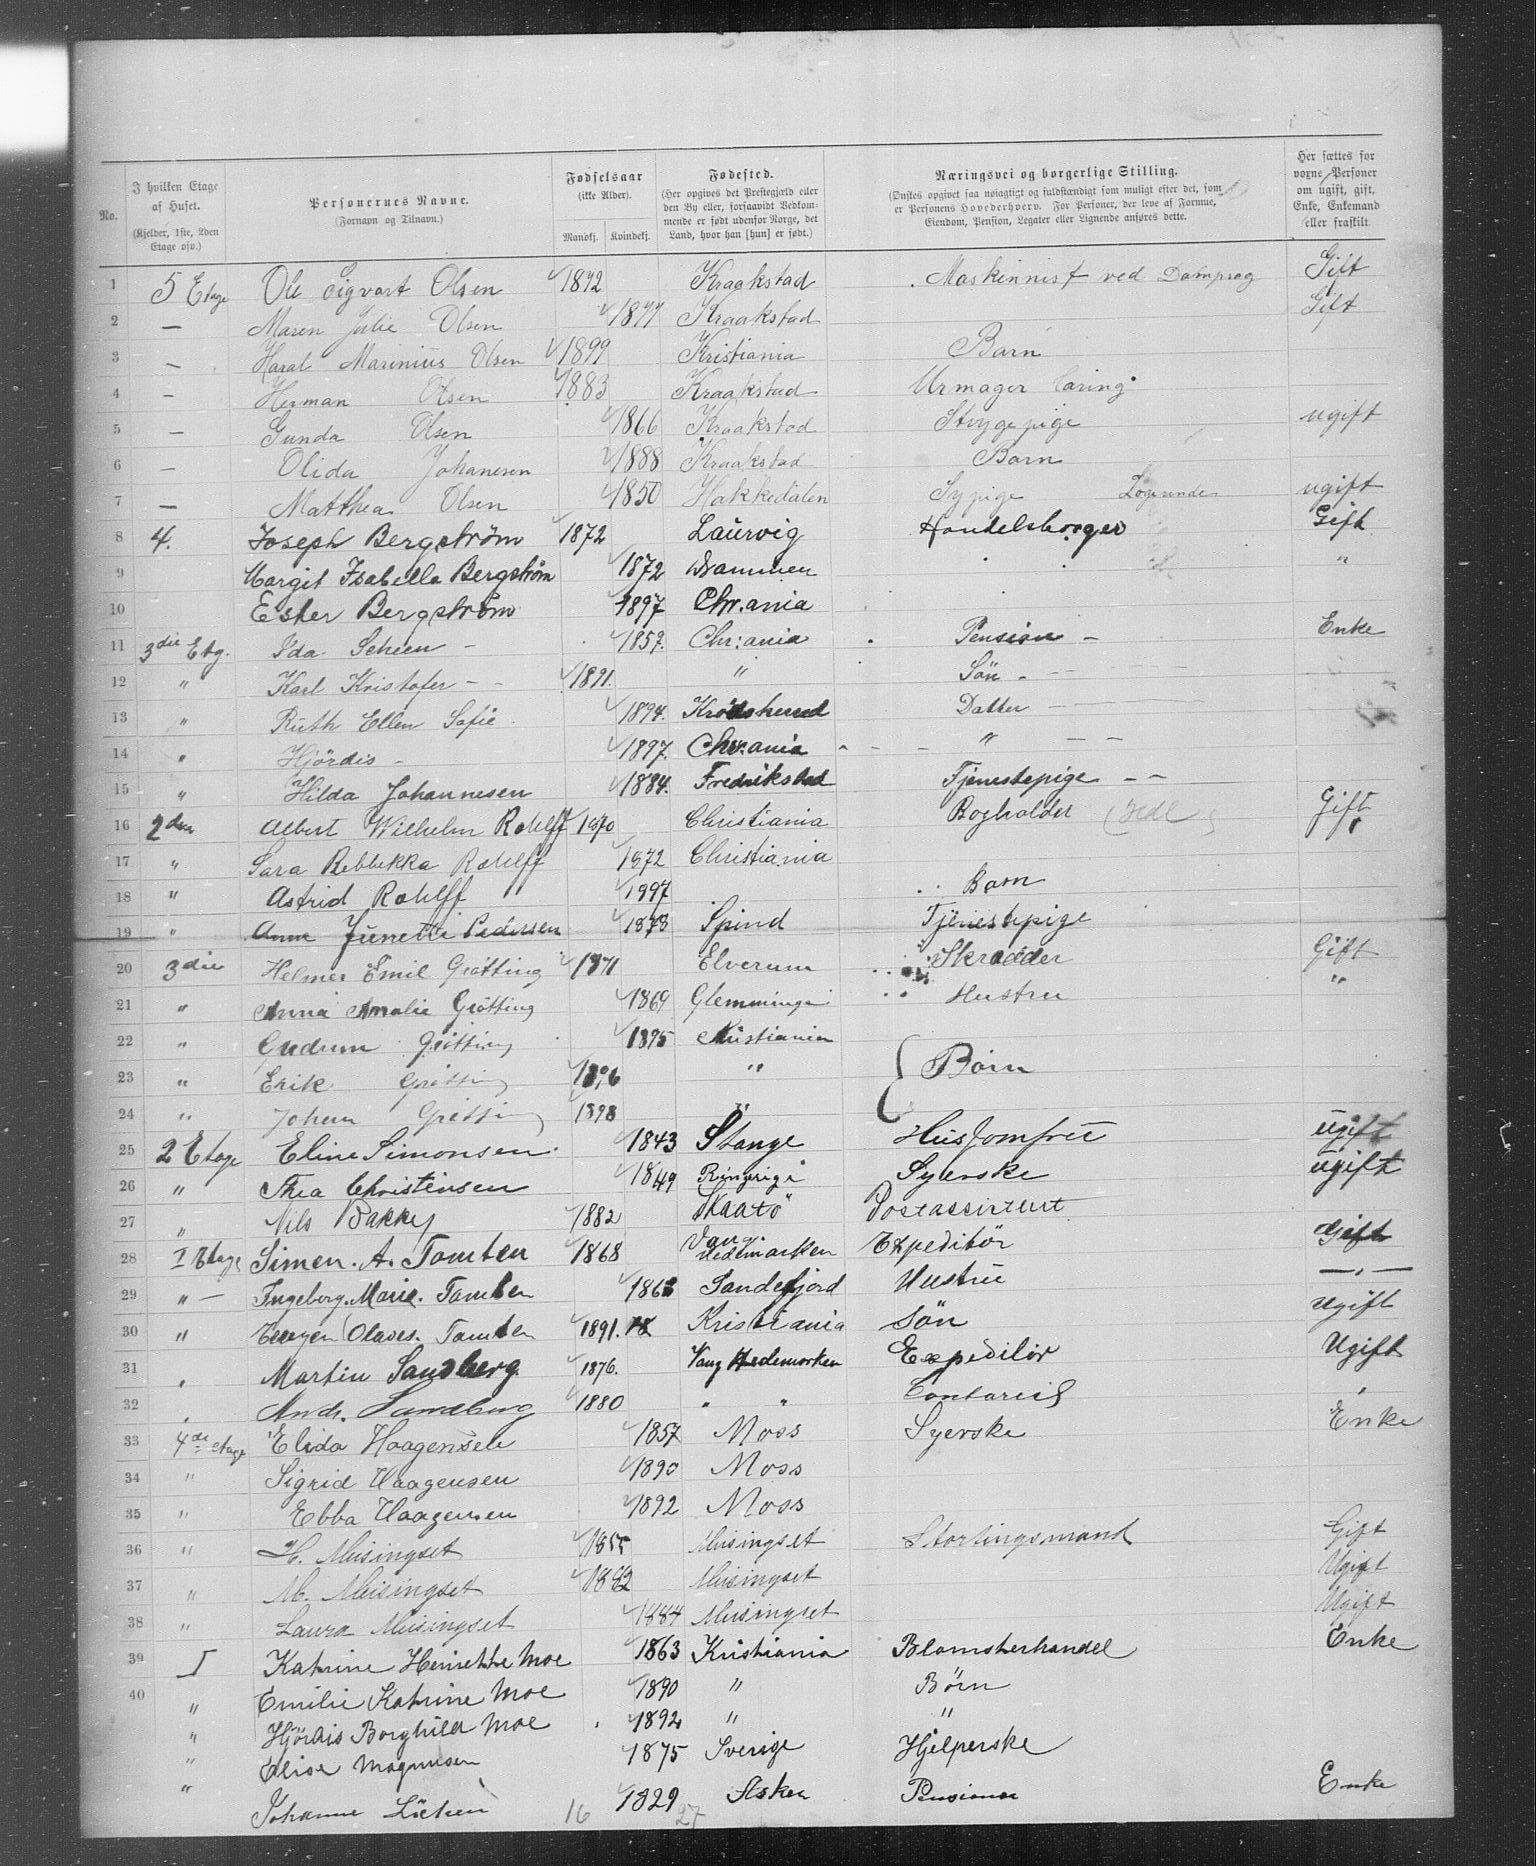 No. | I hvilken Etage af Huset. (Kjelder, 1ste, 2den Etage osv.) | Personernes Navne. (Fornavn og Tilnavn.) | Fødselsaar (ikke Alder). Mandkj. Kvindekj. | Fødested. (Her opgives det Prestegjæld eller den By eller, forsaavidt Vedkommende er født udenfor Norge, det Land, hvor han [hun] er født.) | Næringsvei og borgerlige Stilling. (Ønskes opgivet saa nøiagtigt og fuldstændigt som muligt efter det, som er Personens Hovederhverv. For Personer, der leve af Formue, Eiendom, Pension, Legater eller Lignende anføres dette. | Her sættes for voxne Personer om ugift, gift, Enke, Enkemand eller fraskilt.
1 5 Etage Ole Sigvart Olsen 1872 Kraakstad Maskinnist ved Dampsag Gift
2 — Maren Julie Olsen 1877 Kraakstad Gift
3 — Haral Marinius Olsen 1899 Kristiania Barn
4 — Herman Olsen 1883 Kraakstad Urmager læring
5 — Gunda Olsen 1866 Kraakstad Strygepige ugift
6 — Olida Johanesen 1888 Kraakstad Barn
7 — Matthea Olsen 1850 Hakkedalen Sypige Logerende ugift
8 4. Joseph Bergström 1872 Laurvig Handelsborger Gift
9 Margit Isabella Bergström 1872 Drammen "
10 Ester Bergström 1897 Chr.ania
11 3die Etg. Ida Scheen - 1857. Chr:ania Pension - Enke
12 " Karl Kristofer - - 1891. " Søn - -
13 " Ruth Ellen Sofie 1894. Krødsherred Datter - - -
14 " Hjördis - 1897. Chr.ania - - - " - -
15 " Hilda Johannesen 1884. Fredrikstad Tjenestepige - -
16 2den Albert Wilhelm Rohlff 1870 Christiania Bogholder Gift
17 " Sara Rebbekka Rohlff 1872 Christiania "
18 " Astrid Rohlff 1897 Barn
19 " Anne Junette Pedersen 1878 Spind Tjenestepige
20 3die Helmer Emil Grötting 1871 Elverum Skrædder Gift
21 " Anna Amalie Grötting 1869 Glemminge Hustru "
22 " Gudrun Grötting 1895 Christiania
23 " Erik Grötting 1896 " Børn
24 " Johan Grötting 1898 "
25 2 Etage Eline Simonsen 1843 Stange Husjomfru ugift
26 " Thea Christensen 1849 Ringerige Syerske ugift
27 " Nils Bakke 1882 Skaatö Postassistent
28 1 Etage Simen. A. Tomten 1868 Vang Hedemarken Expeditør Gift
29 " — Ingeborg. Marie. Tomten 1863 Sandefjord Hustru — " —
30 " Olaves. Tomten 1891. Kristiania Søn ugift
31 " Martin Sandberg 1876. Vang Hedemarken Expeditör Ugift
32 " Andr. Sandberg 1880 " " Contorist "
33 4de etage Elida Haagensen 1857 Moss Syerske Enke
34 " Sigrid Haagensen 1890 Moss
35 " Ebba Haagensen 1892 Moss
36 " H. Meisingset 1855 Meisingset Stortingsmand Gift
37 " M. Meisingset 1882 Meisingset Ugift
38 " Laura Meisingset 1884 Meisingset Ugift
39 Katrine Henriette Moe 1863 Kristiania Blomsterhandel Enke
40 " Emilie Katrine Moe 1890 " Børn
" Hjördis Borghild Moe 1892 " "
" Elise Magnusen 1875 Sverige Hjelperske
" Johanne 1829 Asker Pensioner Enke
16 27